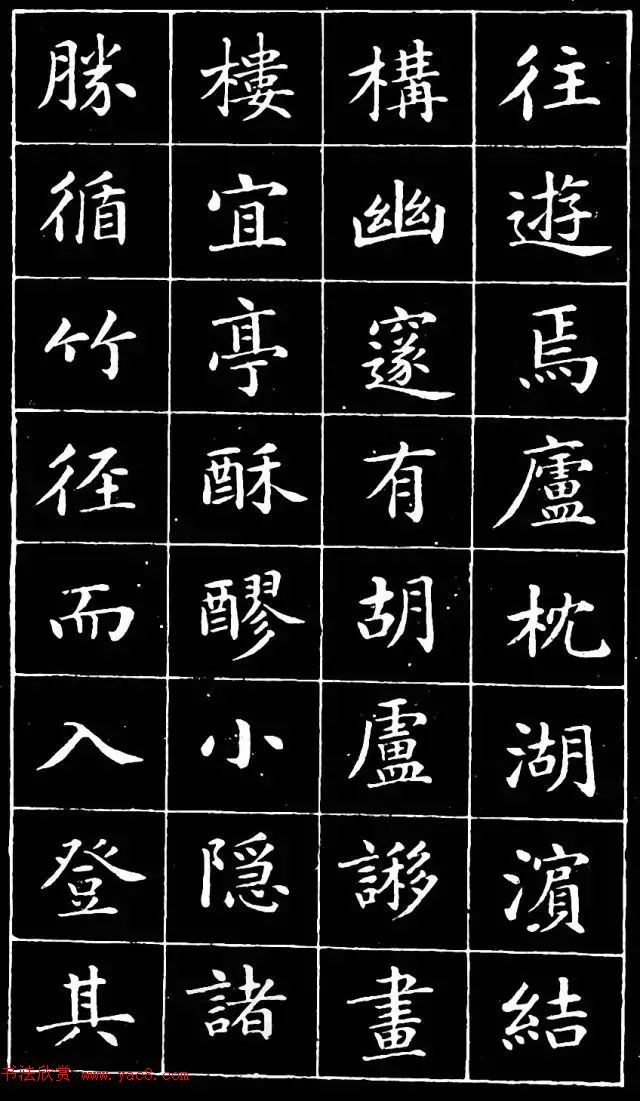 往遊焉廬枕湖濵結
構幽邃有胡盧謻畫
樓宜亭酥醪小隐諸
勝循竹徑而入登其
书法欣赏 www.yac8.com